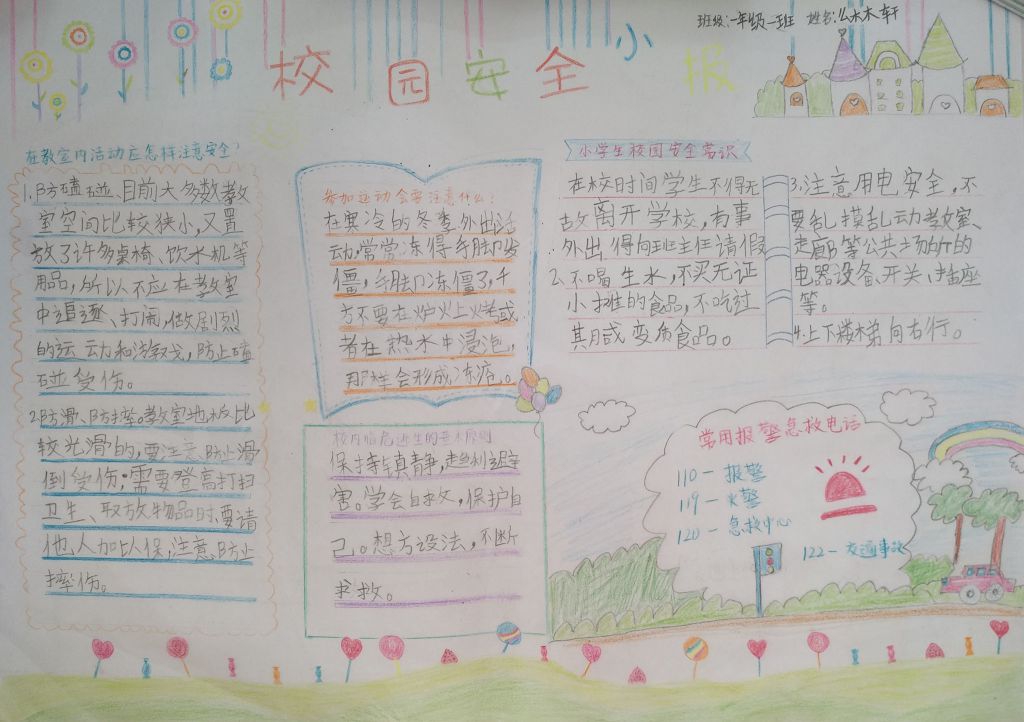 班级:一年级一班 姓名:么林木轩
校园安全小报
在教室内活动应怎样注意安全?
1.防磕碰。目前大多数教
室空间比较狭小,又置
放了许多桌椅、饮水机等
用品,所以不应在教室
中追逐、打闹,做剧烈
的运动和游戏,防止磕
碰受伤。
2.防滑、防摔。教室地板比
较光滑的,要注意防止滑
倒受伤;需要登高打扫
卫生、取放物品时,要请
他人加以保,注意防止
摔伤。
参加运动会要注意什么?
在寒冷的冬季,外出活
动,常常冻得手脚发
僵,手脚冻僵了,千
万不要在炉火上烤或
者在热水中浸泡,
那样会形成冻疮。
校内临危逃生的基本原则
保持镇静,趋利避
害。学会自救,保护自
己。想方设法,不断
求救。
小学生校园安全常识
在校时间学生不得无
故离开学校,有事
外出得向班主任请假
2.不喝生水,不买无证
小摊的食品,不吃过
期或变质食品。
3.注意用电安全,不
要乱摸乱动教室、
走廊等公共场所的
电器设备、开关、插座
等。
4.上下楼梯向右行。
常用报警急救电话
110-报警
119-火警
120-急救中心
122-交通事故